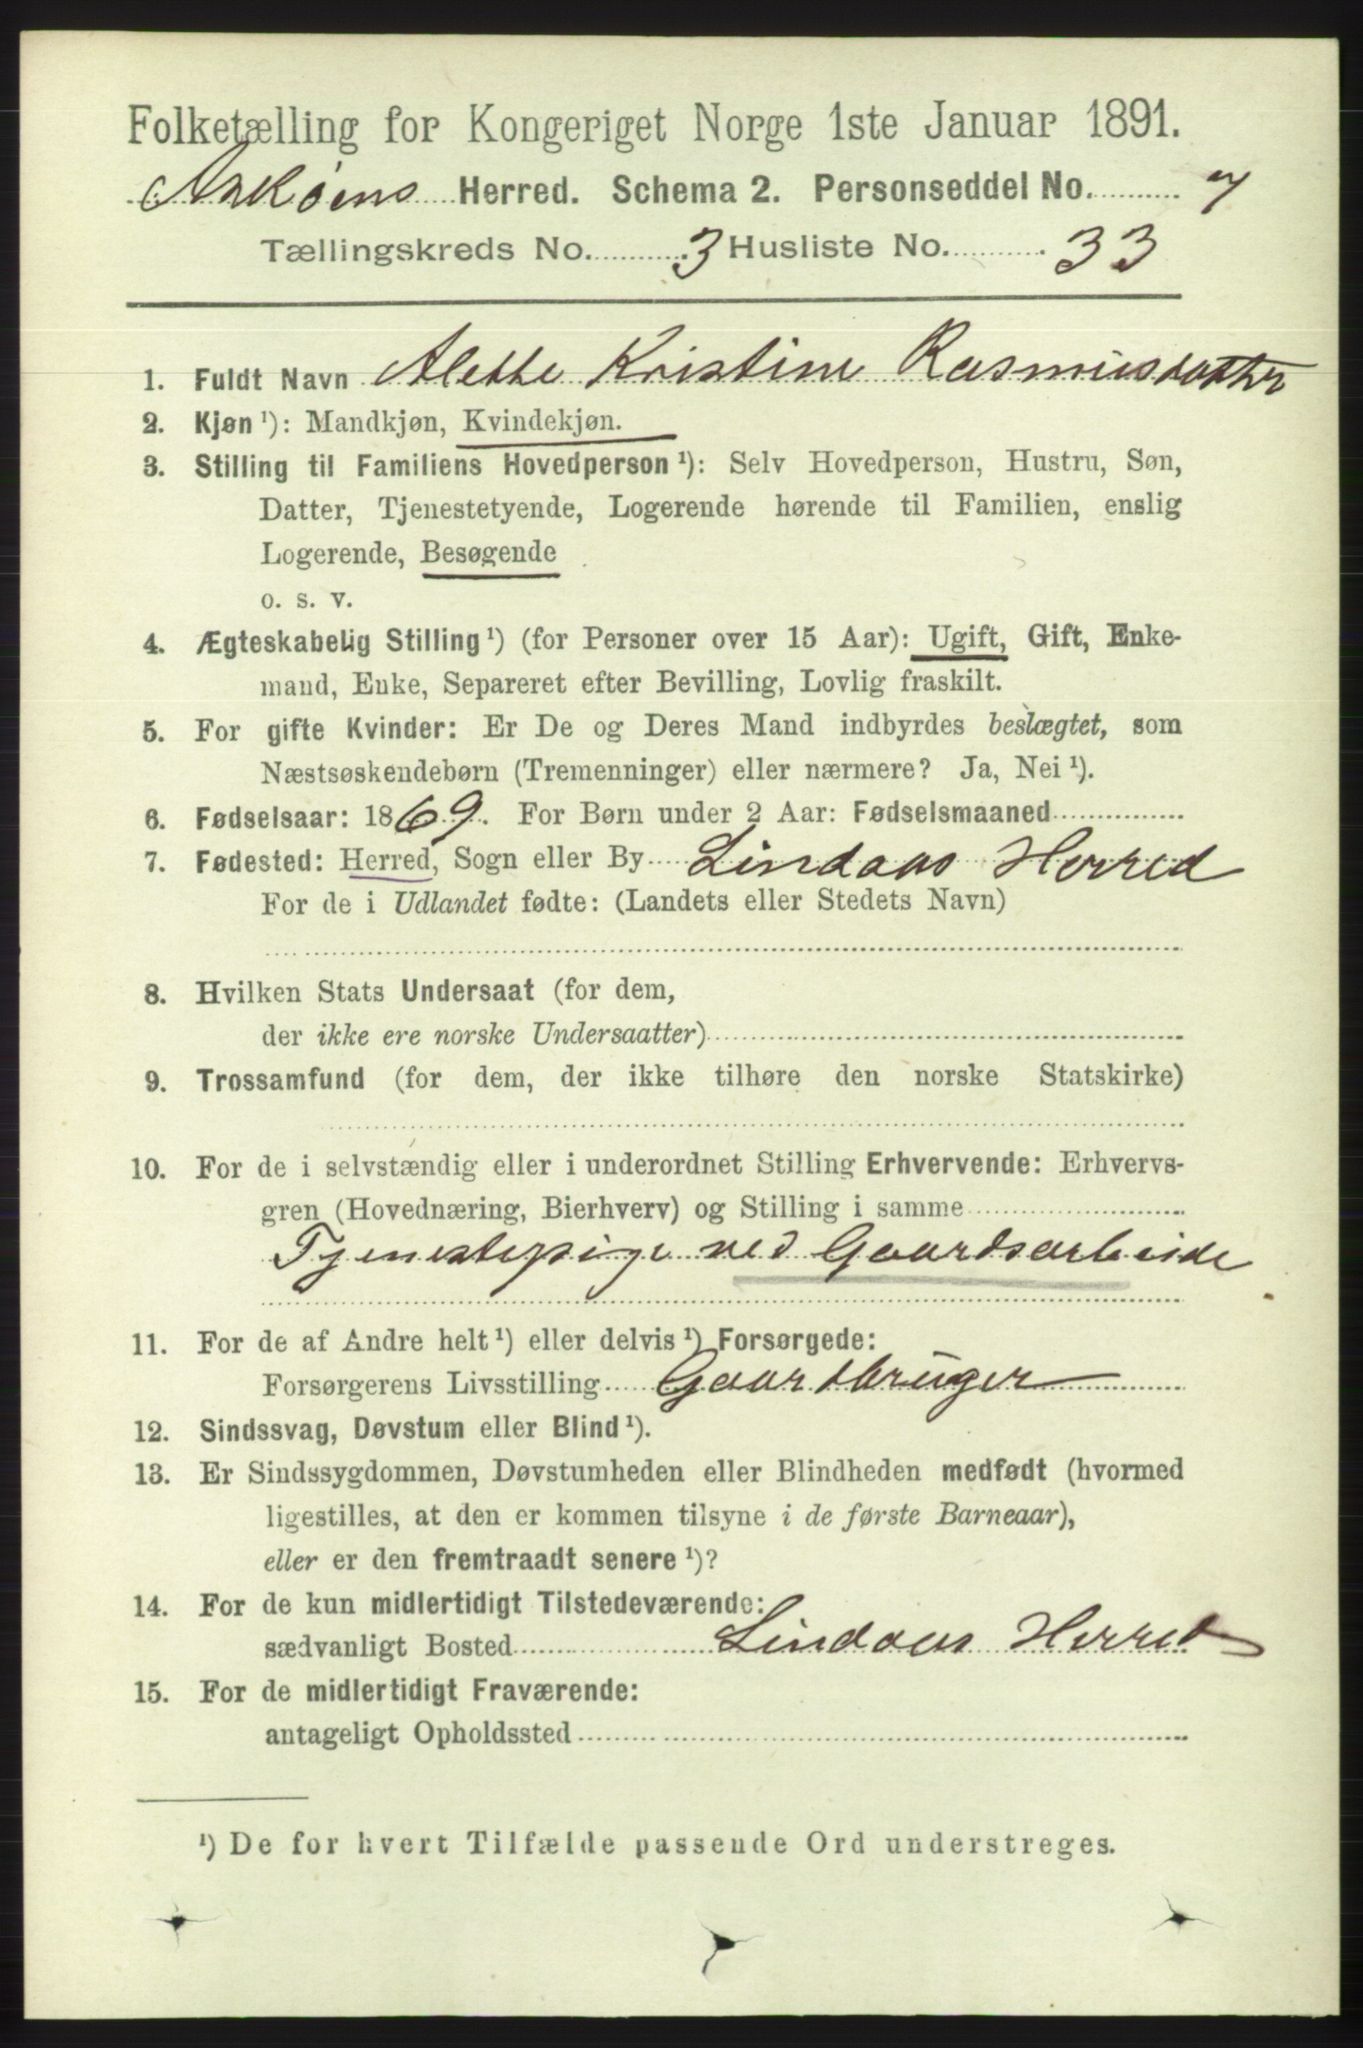 Folketælling for Kongeriget Norge 1ste Januar 1891.
Askøens Herred. Schema 2. Personseddel No. 7
Tællingskreds No. 3 Husliste No. 33
1. Fuldt Navn Alette Kristine Rasmusdatter
2. Kjøn ¹): Mandkjøn, Kvindekjøn.
3. Stilling til Familiens Hovedperson ¹): Selv Hovedperson, Hustru, Søn,
Datter, Tjenestetyende, Logerende hørende til Familien, enslig
Logerende, Besøgende
o. s. v.
4. Ægteskabelig Stilling ¹) (for Personer over 15 Aar): Ugift, Gift, Enke-
mand, Enke, Separeret efter Bevilling, Lovlig fraskilt.
5. For gifte Kvinder: Er De og Deres Mand indbyrdes beslægtet, som
Næstsøskendebørn (Tremenninger) eller nærmere? Ja, Nei ¹).
6. Fødselsaar: 1869. For Børn under 2 Aar: Fødselsmaaned
7. Fødested: Herred, Sogn eller By Lindaas Herred
For de i Udlandet fødte: (Landets eller Stedets Navn)
8. Hvilken Stats Undersaat (for dem,
der ikke ere norske Undersaatter)
9. Trossamfund (for dem, der ikke tilhøre den norske Statskirke)
10. For de i selvstændig eller i underordnet Stilling Erhvervende: Erhvervs-
gren (Hovednæring, Bierhverv) og Stilling i samme
Tjenestepige ved Gaardsarbeide
11. For de af Andre helt ¹) eller delvis ¹) Forsørgede:
Forsørgerens Livsstilling Gaardbruger
12. Sindssvag, Døvstum eller Blind ¹).
13. Er Sindssygdommen, Døvstumheden eller Blindheden medfødt (hvormed
ligestilles, at den er kommen tilsyne i de første Barneaar),
eller er den fremtraadt senere ¹)?
14. For de kun midlertidigt Tilstedeværende:
sædvanligt Bosted Lindaas Herred
15. For de midlertidigt Fraværende:
antageligt Opholdssted
¹) De for hvert Tilfælde passende Ord understreges.